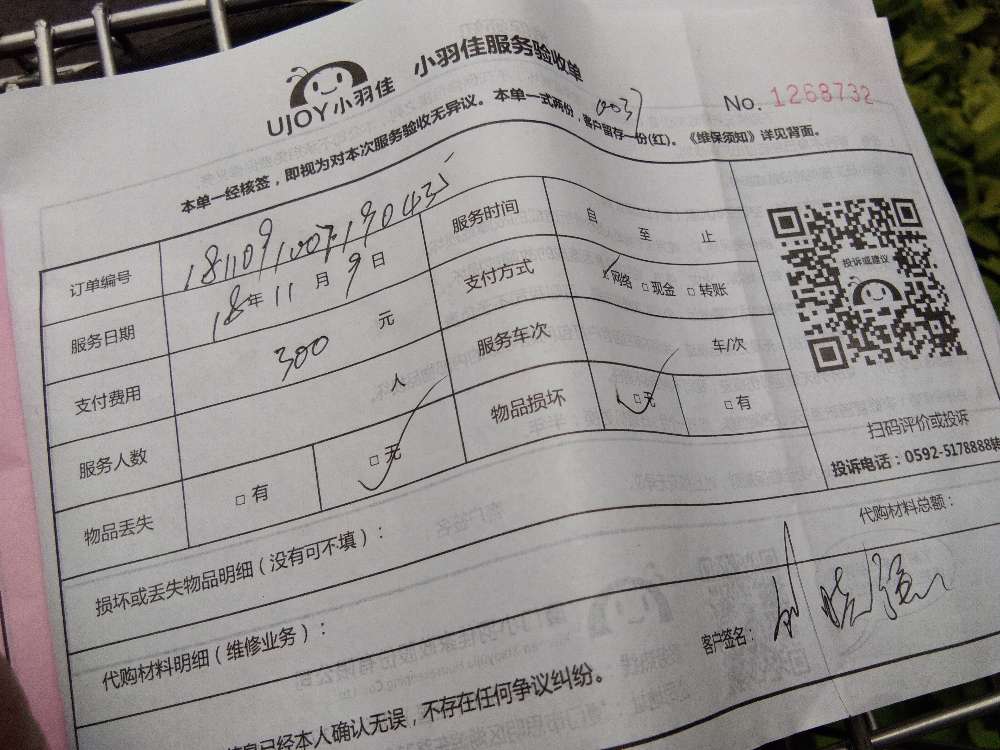 UJOY小羽佳 小羽佳服务验收单
No. 1268732
007
本单一经核签，即视为对本次服务验收无异议。本单一式两份，客户留存一份(红)。《维保须知》详见背面。
订单编号 181109100719043 服务时间 自 至 止
服务日期 18年11月9日 支付方式 网络 □现金 □转账
支付费用 300 元 服务车次 车/次
服务人数 人 物品损坏 □无 □有
物品丢失 □有 □无
投诉或建议
扫码评价或投诉
投诉电话：0592-5178888转
损坏或丢失物品明细（没有可不填）：
代购材料总额：
代购材料明细（维修业务）：
客户签名：
信息已经本人确认无误，不存在任何争议纠纷。